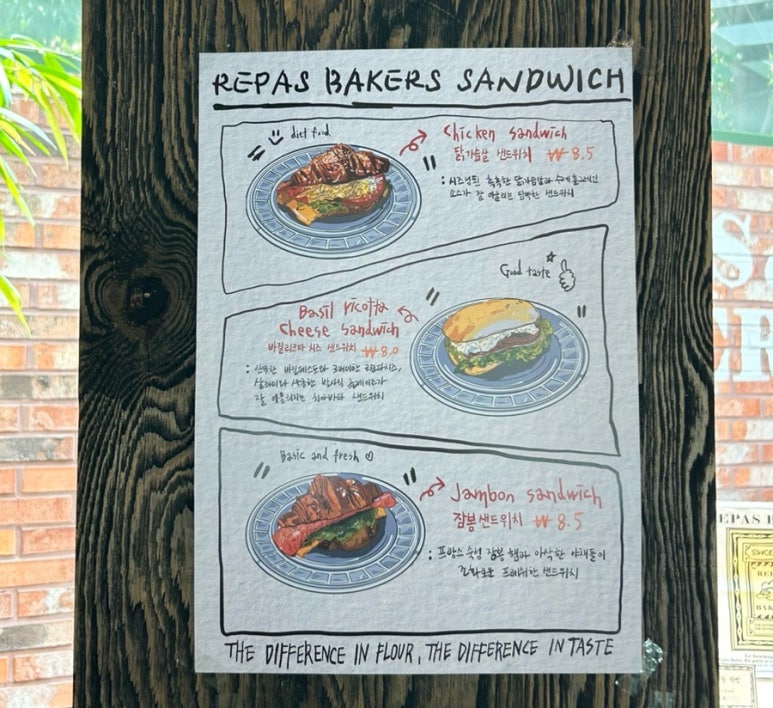 REPAS BAKERS SANDWICH
diet food
Chicken sandwich
닭가슴살 샌드위치 ₩8.5
: 시즈닝된 촉촉한 닭가슴살과
소스가 잘 어울리는 담백한 샌드위치
Good taste
Basil ricotta
Cheese sandwich
바질리코타 치즈 샌드위치 ₩8.0
: 산뜻한 바질페스토와 크리미한 리코타치즈,
잘 어울리는 치아바타 샌드위치
Basic and fresh
Jambon sandwich
잠봉샌드위치 ₩8.5
: 프랑스 숙성 잠봉 햄과 아삭한 야채들이
조화로운 프레쉬한 샌드위치
THE DIFFERENCE IN FLOUR, THE DIFFERENCE IN TASTE
EPAS
SINCE